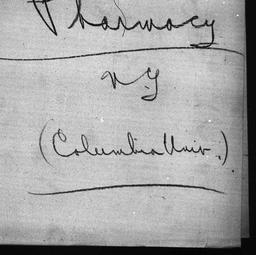 Pharmacy
N.Y
(Columbia Univ.)